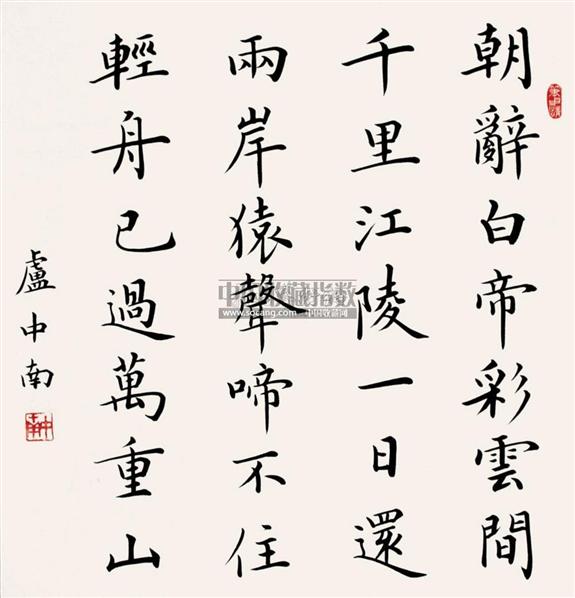 朝辭白帝彩雲間
千里江陵一日還
兩岸猿聲啼不住
輕舟已過萬重山
盧中南
中国收藏指数
www.socang.com 中国收藏网